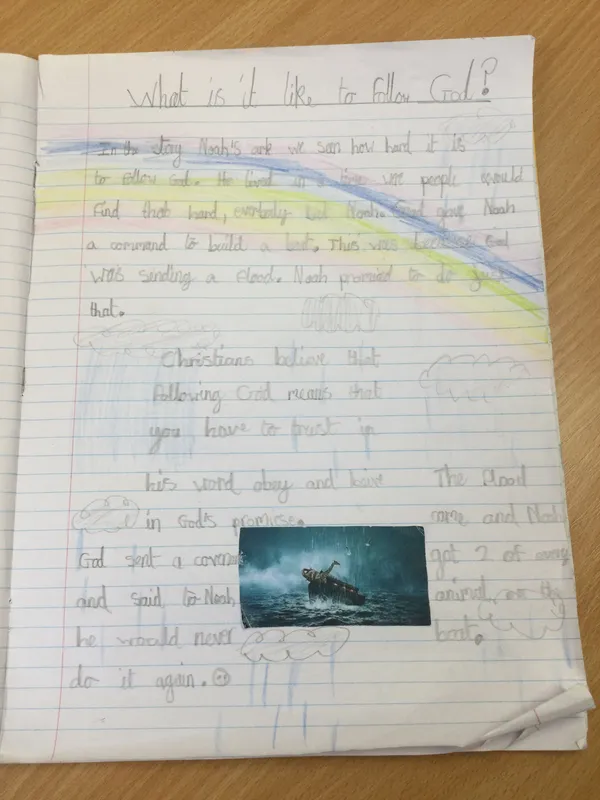 What is it like to follow God?
In the story Noah's ark we seen how hard it is
to follow God. He lived in a time wer people would
find that hard, everbody but Noah. God gave Noah
a command to build a boat. This was because God
was sending a flood. Noah promised to do just
that.
Christians believe that
following God means that
you have to trust in
his word obey and
in God's promise.
God sent a covenant
and said to Noah
he would never
do it again.
The flood
came and Noah
got 2 of every
animal, on the
boat.